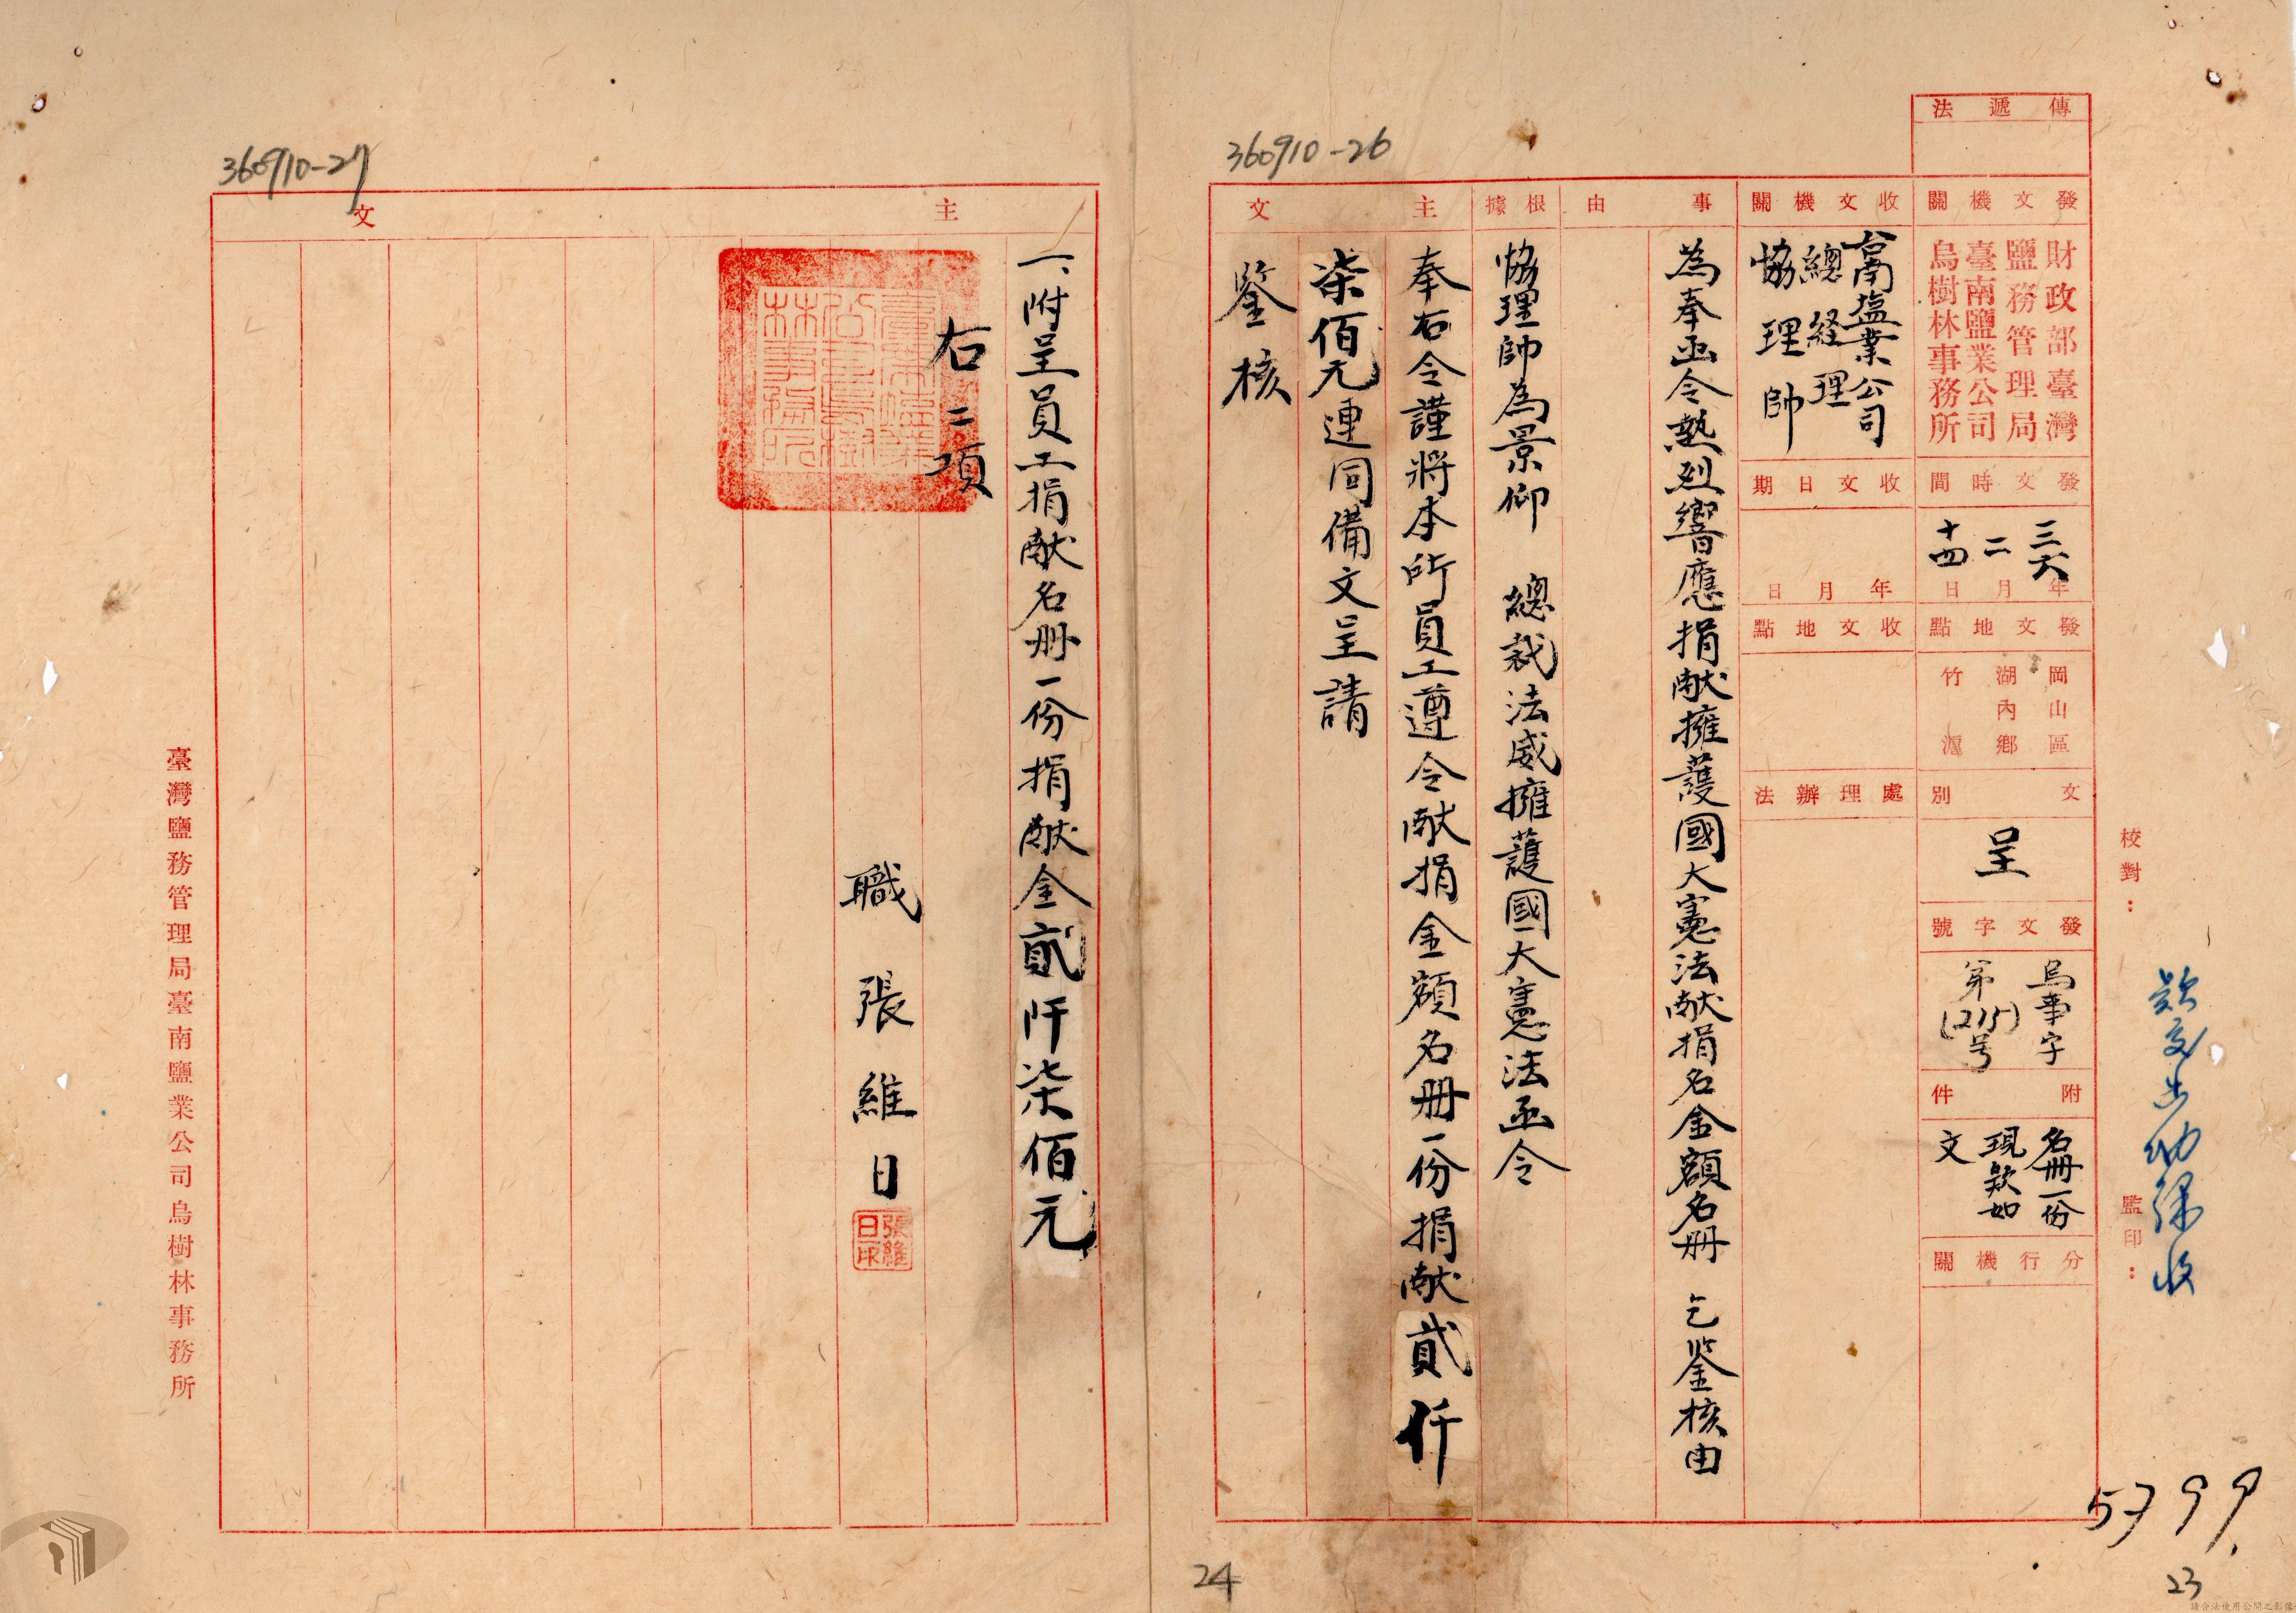 傳遞法
發文機關
財政部臺灣
鹽務管理局
臺南鹽業公司
烏樹林事務所
發文時間
三六年
二月
十四日
發文地點
岡山區
湖內鄉
竹滬
文別
呈
發文字號
烏事字
第(215)号
附件
名冊一份
現欵如
文
分行機關
校對：
監印：
欵交出納課收
收文機關
台南塩業公司
總経理
協理帥
收文日期
年月日
收文地點
處理辦法
事由
為奉函令熱烈響應捐献擁護國大憲法献捐名金額名冊 乞鑒核由
根據
協理帥為景仰 總裁法威擁護國大憲法函令
主文
奉右令謹將本所員工遵令献捐金額名冊一份捐献貳仟
柒佰元連同備文呈請
鑒核
360910-26
5799
23
24
360910-27
主文
一、附呈員工捐献名冊一份捐献金貳仟柒佰元
右二項
職張維日
張維
日印
臺灣鹽務管理局臺南鹽業公司烏樹林事務所
請合法使用公開之影像